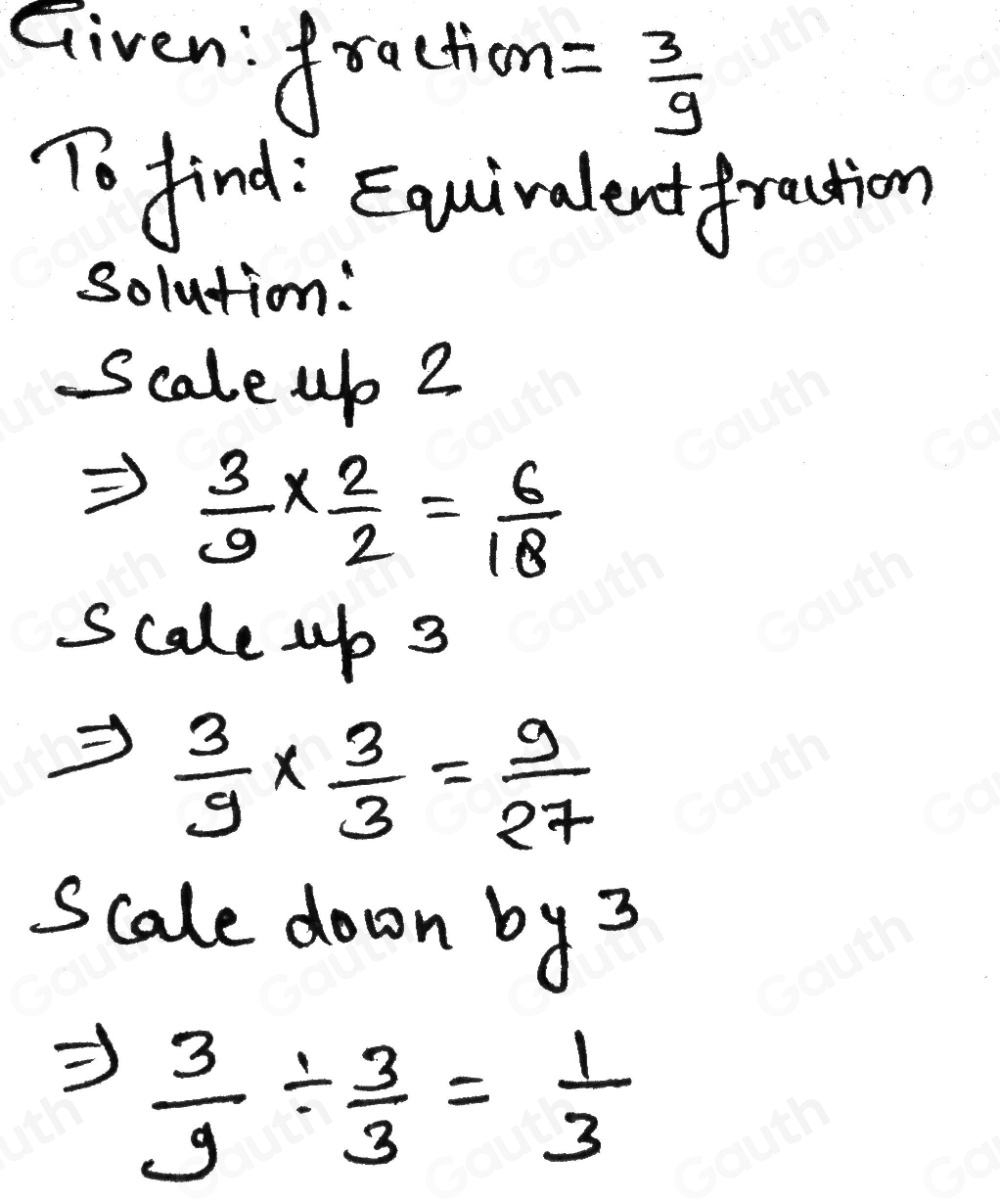 Given: fraction = 3/9
To find: Equivalent fraction
Solution:
Scale up 2
⇒ 3/9 × 2/2 = 6/18
Scale up 3
⇒ 3/9 × 3/3 = 9/27
Scale down by 3
⇒ 3/9 ÷ 3/3 = 1/3
Gauth